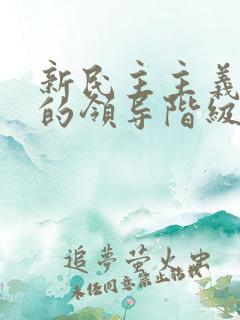 新民主主義
的領导階級
追夢萤火虫
未经同意禁止转载